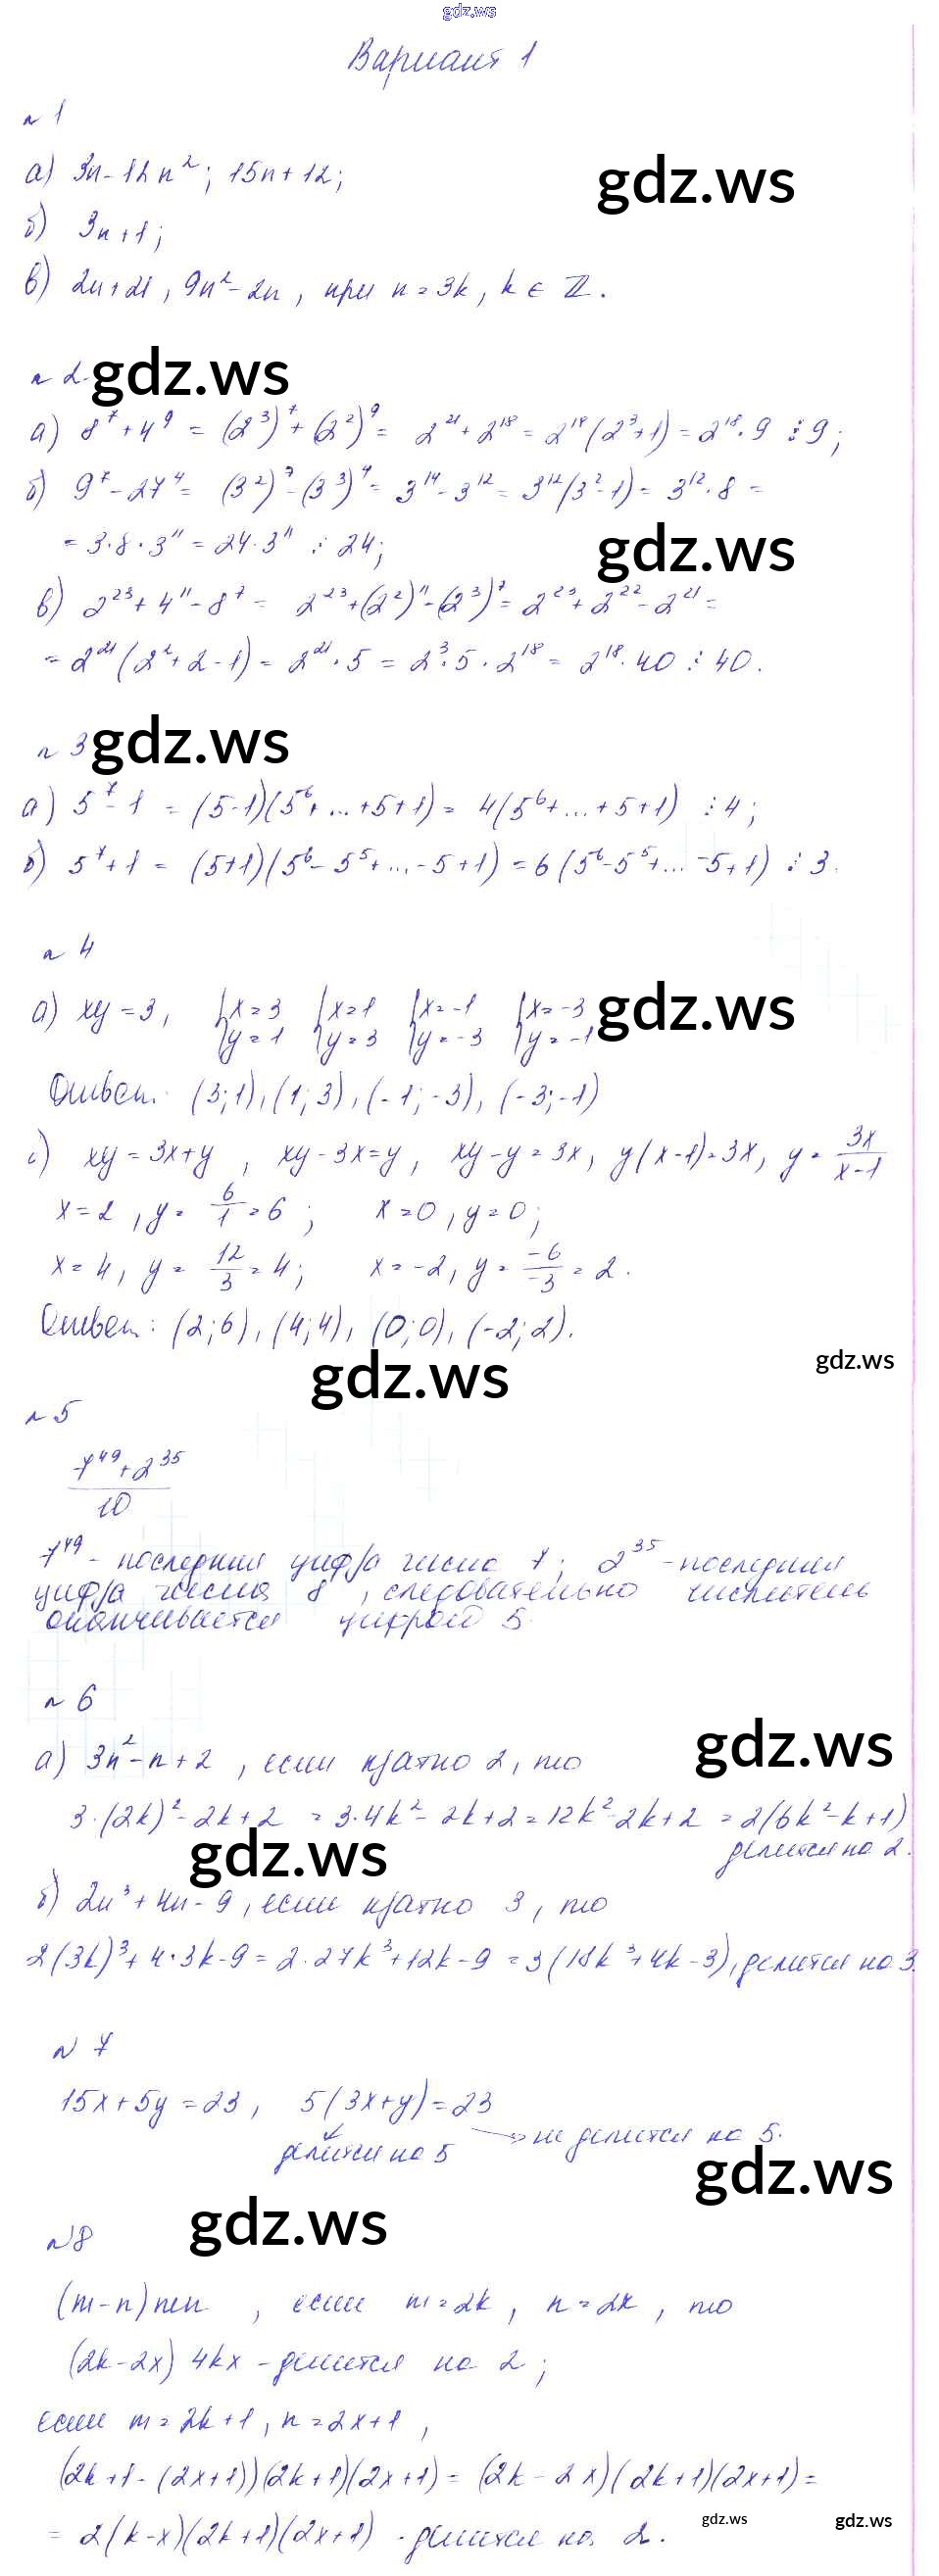 gdz.ws
Вариант 1
n 1
а) 3n - 12n²; 15n + 12;
gdz.ws
б) 3n + 1;
в) 2n + 21, 9n² - 2n, при n = 3k, k ∈ ℤ.
n 2 gdz.ws
а) 8⁷ + 4⁹ = (2³)⁷ + (2²)⁹ = 2²¹ + 2¹⁸ = 2¹⁸(2³ + 1) = 2¹⁸ · 9 ⋮ 9;
б) 9⁷ - 27⁴ = (3²)⁷ - (3³)⁴ = 3¹⁴ - 3¹² = 3¹²(3² - 1) = 3¹² · 8 =
= 3 · 8 · 3¹¹ = 24 · 3¹¹ ⋮ 24;
gdz.ws
в) 2²³ + 4¹¹ - 8⁷ = 2²³ + (2²)¹¹ - (2³)⁷ = 2²³ + 2²² - 2²¹ =
= 2²¹(2² + 2 - 1) = 2²¹ · 5 = 2³ · 5 · 2¹⁸ = 2¹⁸ · 40 ⋮ 40.
n 3 gdz.ws
а) 5⁷ - 1 = (5-1)(5⁶ + ... + 5 + 1) = 4(5⁶ + ... + 5 + 1) ⋮ 4;
б) 5⁷ + 1 = (5+1)(5⁶ - 5⁵ + ... - 5 + 1) = 6(5⁶ - 5⁵ + ... - 5 + 1) ⋮ 3.
n 4
а) xy = 3, { x = 3 { x = 1 { x = -1 { x = -3
y = 1 y = 3 y = -3 y = -1
gdz.ws
Ответ: (3; 1), (1; 3), (-1; -3), (-3; -1)
xy = 3x + y, xy - 3x = y, xy - y = 3x, y(x-1) = 3x, y = 3x/(x-1)
x = 2, y = 6/1 = 6; x = 0, y = 0;
x = 4, y = 12/3 = 4; x = -2, y = -6/-3 = 2.
Ответ: (2; 6), (4; 4), (0; 0), (-2; 2).
gdz.ws
gdz.ws
n 5
7⁴⁹ + 2³⁵
10
7⁴⁹ - последния цифра числа 7; 2³⁵ - последния
цифра числа 8, следовательно числитель
оканчивается цифрой 5.
n 6
а) 3n² - n + 2, если кратно 2, то
gdz.ws
3 · (2k)² - 2k + 2 = 3 · 4k² - 2k + 2 = 12k² - 2k + 2 = 2(6k² - k + 1)
делится на 2.
gdz.ws
б) 2n³ + 4n - 9, если кратно 3, то
2(3k)³ + 4 · 3k - 9 = 2 · 27k³ + 12k - 9 = 3(18k³ + 4k - 3), делится на 3.
n 7
15x + 5y = 23, 5(3x + y) = 23
делится на 5 → не делится на 5.
gdz.ws
n 8 gdz.ws
(m - n) mn, если m = 2k, n = 2x, то
(2k - 2x) 4kx - делится на 2;
если m = 2k + 1, n = 2x + 1,
(2k + 1 - (2x + 1))(2k + 1)(2x + 1) = (2k - 2x)(2k + 1)(2x + 1) =
= 2(k - x)(2k + 1)(2x + 1) - делится на 2.
gdz.ws
gdz.ws